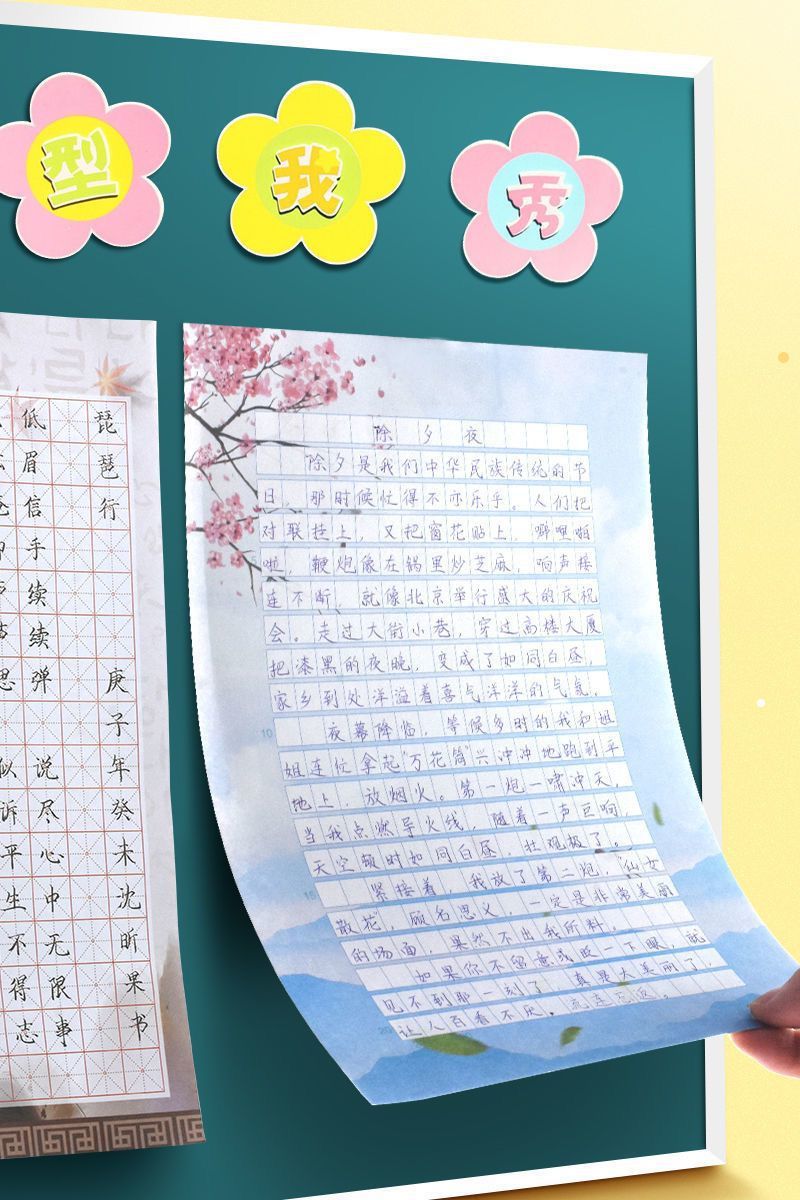 型 我 秀
琵琶行
低眉信手续续弹
似说尽
诉
平心
生中
不无
得限
志事
庚子年癸未沈昕果书
除夕夜
除夕是我们中华民族传统的节
日，那时候忙得不亦乐乎。人们把
对联挂上，又把窗花贴上，噼哩啪
啦，鞭炮像在锅里炒芝麻，响声接
连不断，就像北京举行盛大的庆祝
会。走过大街小巷，穿过高楼大厦
把漆黑的夜晚，变成了如同白昼，
家乡到处洋溢着喜气洋洋的气氛，
10
夜幕降临，等候多时的我和姐
姐连忙拿起“万花筒”兴冲冲地跑到平
地上，放烟火。第一炮一啸冲天，
当我点燃导火线，随着一声巨响，
天空顿时如同白昼，壮观极了。
15
紧接着，我放了第二炮，“仙女
散花”，顾名思义，一定是非常美丽
的场面，果然不出我所料。
如果你不留意或眨一下眼，就
见不到那一刻了，真是太美丽了，
20
让人百看不厌，流连忘返。